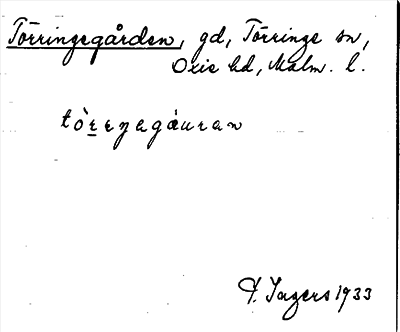 Törringegården, gd, Törringe sn,
Oxie hd, Malm. l.
tòrezagáuran
F. Ingers 1933